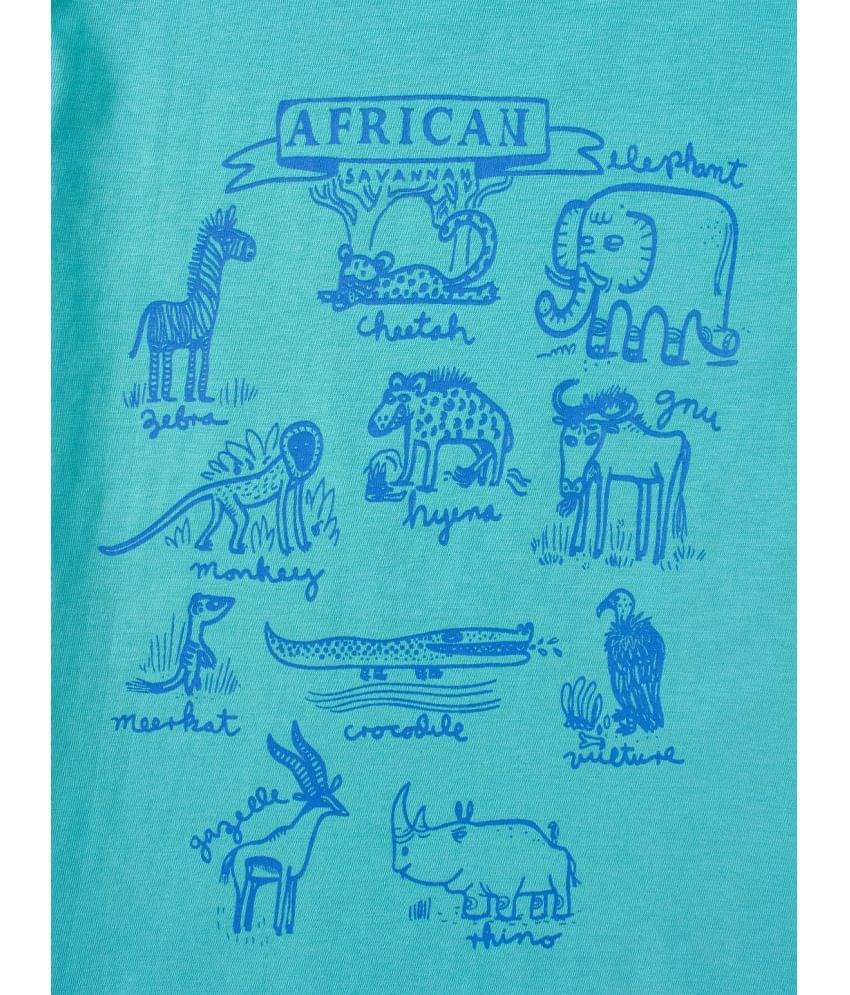 AFRICAN
SAVANNAH
elephant
cheetah
zebra
gnu
hyena
monkey
meerkat
crocodile
vulture
gazelle
rhino